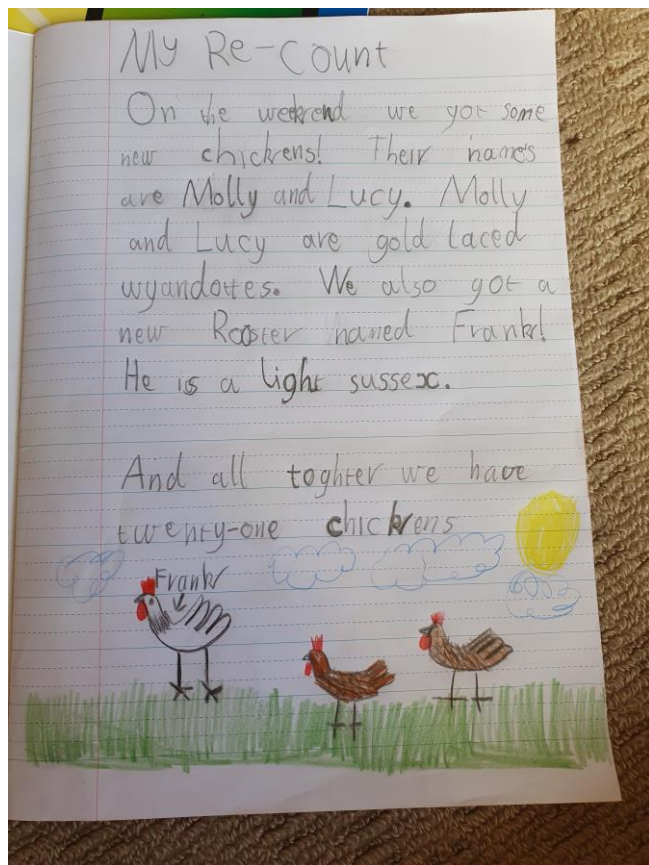 My Re-count
On the weekend we got some
new chickens! Their names
are Molly and Lucy. Molly
and Lucy are gold laced
wyandottes. We also got a
new Rooster named Frank!
He is a light sussex.
And all toghter we have
twenty-one chickens
Frank